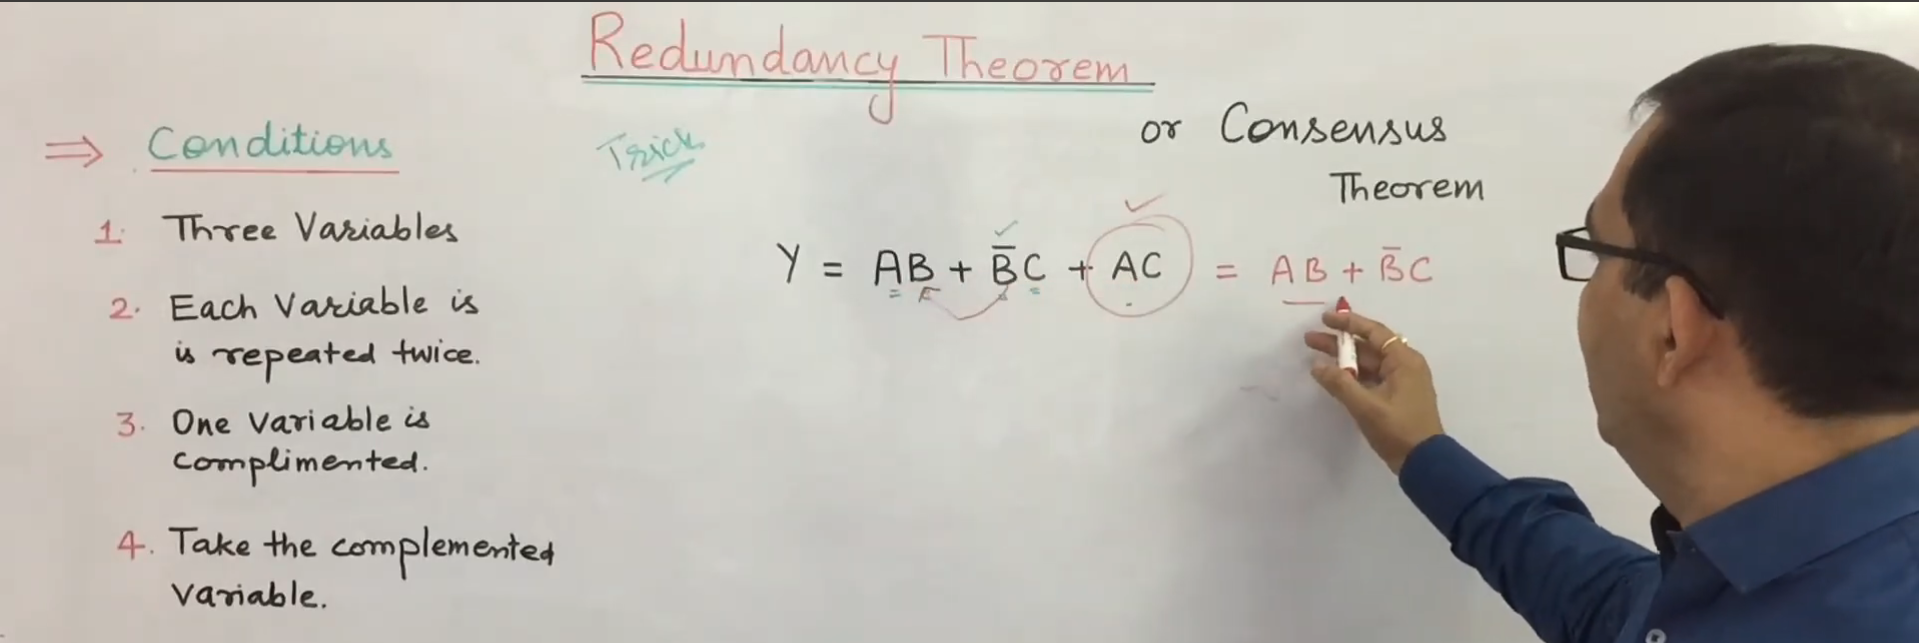 Redundancy Theorem
or Consensus
Theorem
⇒ Conditions
1. Three Variables
2. Each Variable is
is repeated twice.
3. One Variable is
complimented.
4. Take the complemented
variable.
Trick
Y = AB + B̅C + AC = AB + B̅C